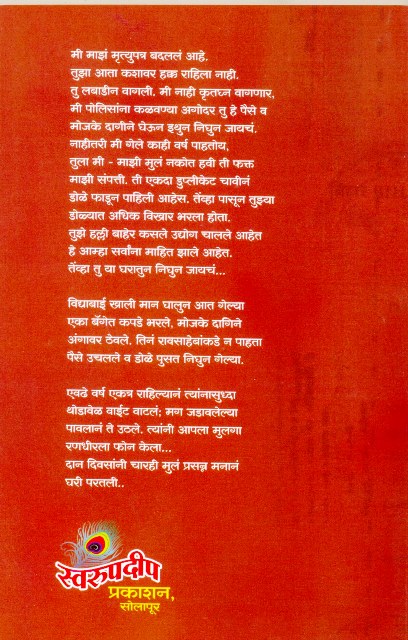 मी माझं मृत्युपत्र बदललं आहे.
तुझा आता कशावर हक्क राहिला नाही.
तु लबाडीन वागली. मी नाही कृतघ्न वागणार,
मी पोलिसांना कळवण्या अगोदर तु हे पैसे व
मोजके दाणीने घेऊन इथुन निघुन जायचं.
नाहीतरी मी गेले काही वर्ष पाहतोय,
तुला मी - माझी मुलं नकोत हवी ती फक्त
माझी संपत्ती. ती एकदा डुप्लीकेट चावीनं
डोळे फाडून पाहिली आहेस. तेंव्हा पासून तुझ्या
डोळ्यात अधिक विखार भरला होता.
तुझे हल्ली बाहेर कसले उद्योग चालले आहेत
हे आम्हा सर्वांना माहित झाले आहेत.
तेंव्हा तु या घरातुन निघुन जायचं...
विद्याबाई खाली मान घालुन आत गेल्या
एका बॅगेत कपडे भरले, मोजके दागिने
अंगावर ठेवले. तिनं रावसाहेबांकडे न पाहता
पैसे उचलले व डोळे पुसत निघुन गेल्या.
एवढे वर्ष एकत्र राहिल्यानं त्यांनासुध्दा
थोडावेळ वाईट वाटलं; मग जडावलेल्या
पावलानं ते उठले. त्यांनी आपला मुलगा
रणधीरला फोन केला...
दान दिवसांनी चारही मुलं प्रसन्न मनानं
घरी परतली..
स्वरुपदीप
प्रकाशन,
सोलापूर